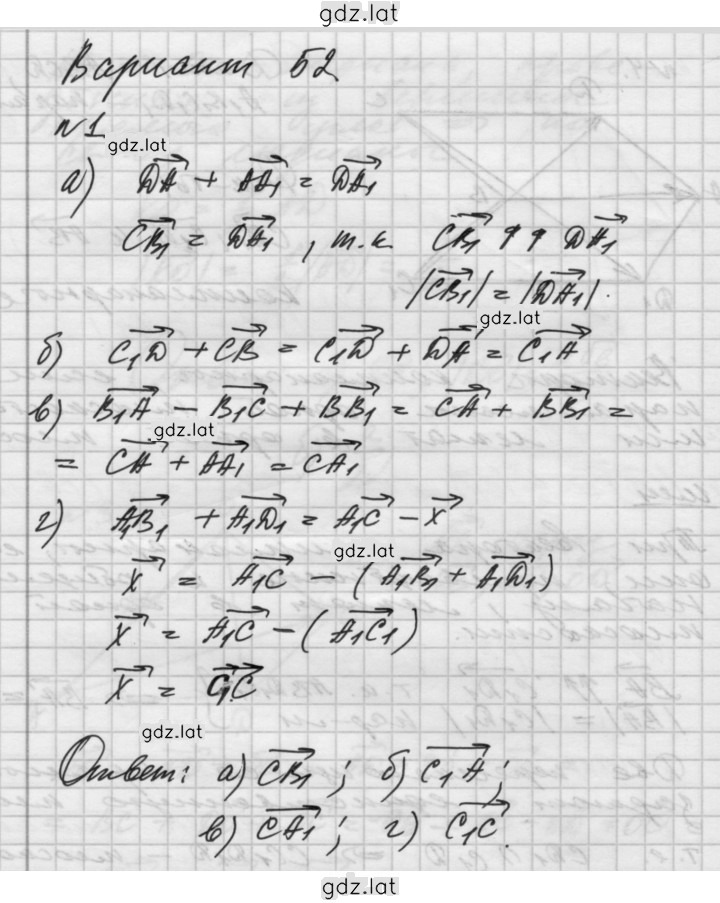 gdz.lat
Вариант Б2
№1
gdz.lat
а) DA + AA₁ = DA₁
CB₁ = DA₁, т.к. CB₁ ↑↑ DA₁
|CB₁| = |DA₁|.
gdz.lat
б) C₁D + CB = C₁D + DA = C₁A
в) B₁A − B₁C + BB₁ = CA + BB₁ =
gdz.lat
= CA + AA₁ = CA₁
г) A₁B₁ + A₁D₁ = A₁C − X
gdz.lat
X = A₁C − (A₁B₁ + A₁D₁)
X = A₁C − (A₁C₁)
X = C₁C
gdz.lat
Ответ: а) CB₁; б) C₁A;
в) CA₁; г) C₁C.
gdz.lat